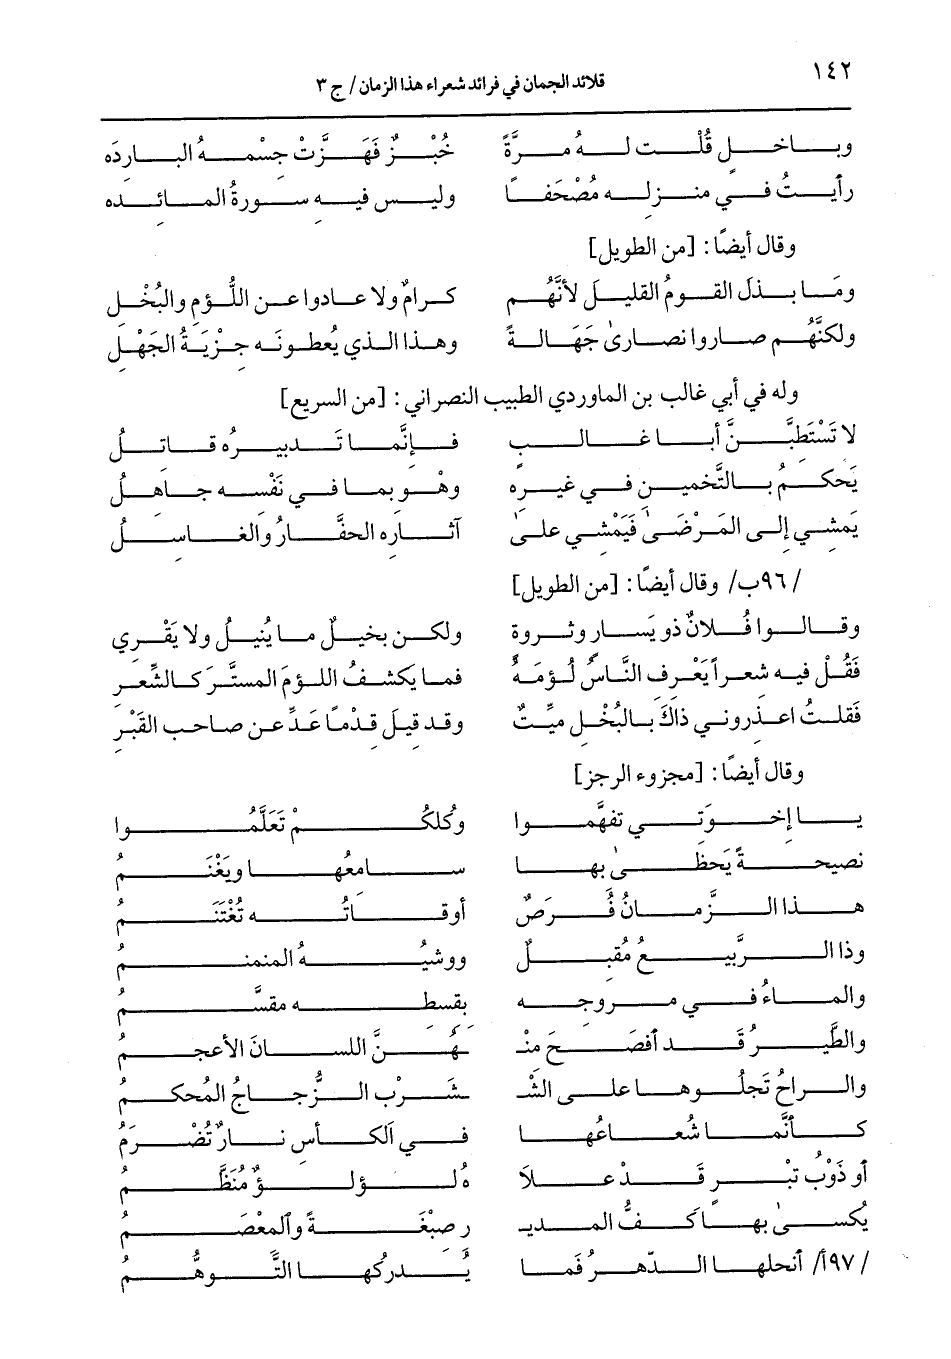 ١٤٢
قلائد الجمان في فرائد شعراء هذا الزمان / ج ٣
وبـاخـل قُلْـت لـه مـرَّةً خُبْـزٌ فَهَـزَّتْ جِسْمـهُ البـاردَه
رأيـتُ فـي منـزلـه مُصْحَفـاً وليـس فيـه سـورةُ المـائـده
وقال أيضًا: [من الطويل]
ومَـا بـذلَ القـومُ القليـلَ لأنَّهُـم كـرامٌ ولا عـادوا عـن اللُّؤمِ والبُخْـل
ولكنَّهُـم صـاروا نصـارىٰ جَهَـالـةً وهـذا الـذي يُعطونَـه جِـزْيَـةُ الجَهْـلِ
وله في أبي غالب بن الماوردي الطبيب النصراني: [من السريع]
لا تَسْتَطِبَّـنَّ أبـا غـالـب فـإنَّمـا تَـدبيـرُه قـاتـلُ
يَحكـمُ بـالتَّخميـن فـي غيـرِه وهْـو بمـا فـي نَفْسِـه جـاهِـلُ
يَمشـي إلـى المَـرْضَـىٰ فَيَمْشِـي علـىٰ آثـاره الحفَّـارُ والغـاسـلُ
/٩٦ب/ وقال أيضًا: [من الطويل]
وقـالـوا فُـلانٌ ذو يَسـار وثـروة ولكـن بخيـلٌ مـا يُنيـلُ ولا يَقْـرِي
فَقُلْ فيـه شعـراً يَعْـرِف النَّـاسُ لُـؤمَـهُ فمـا يكشـفُ اللـؤمَ المستَّـرَ كـالشِّعـر
فَقلـتُ اعـذرونـي ذاكَ بـالبُخْـل ميِّـتٌ وقـد قيـلَ قدْمًا عَدِّ عـن صاحـب القَبْـرِ
وقال أيضًا: [مجزوء الرجز]
يـا إخـوَتـي تفهَّمـوا وكُلكُـمْ تَعَلَّمُـوا
نصيحـةً يَحظـىٰ بهـا سـامعُهـا ويَغْنَـمُ
هـذا الـزَّمـانُ فُـرَصٌ أوقـاتُـه تُغْتَنَـمُ
وذا الـرَّبيـعُ مُقبـلٌ ووشيُـهُ المنمنـمُ
والمـاءُ فـي مـروجـه بقسطِـه مقسَّـمُ
والطَّيـرُ قَـد أفصَـحَ مِنْـ ـهُـنَّ اللسـانَ الأعجـمُ
والـراحُ تَجلُـوهـا علـى الشَّـ ـشَـرْب الـزُّجـاجُ المُحكـمُ
كـأنَّمـا شُعـاعُهـا فـي الكـأسِ نـارٌ تُضْـرَمُ
أو ذَوْبُ تبْـرٍ قَـدْ عـلاَ هُ لـؤلـؤٌ مُنَظَّـمُ
يُكسـىٰ بهـا كـفُّ المـديـ ـر صبْغَـةً والمِعْصَـمُ
/٩٧أ/ أنحلهـا الـدّهـرُ فَمـا يُـدركهـا التَّـوهُّـمُ